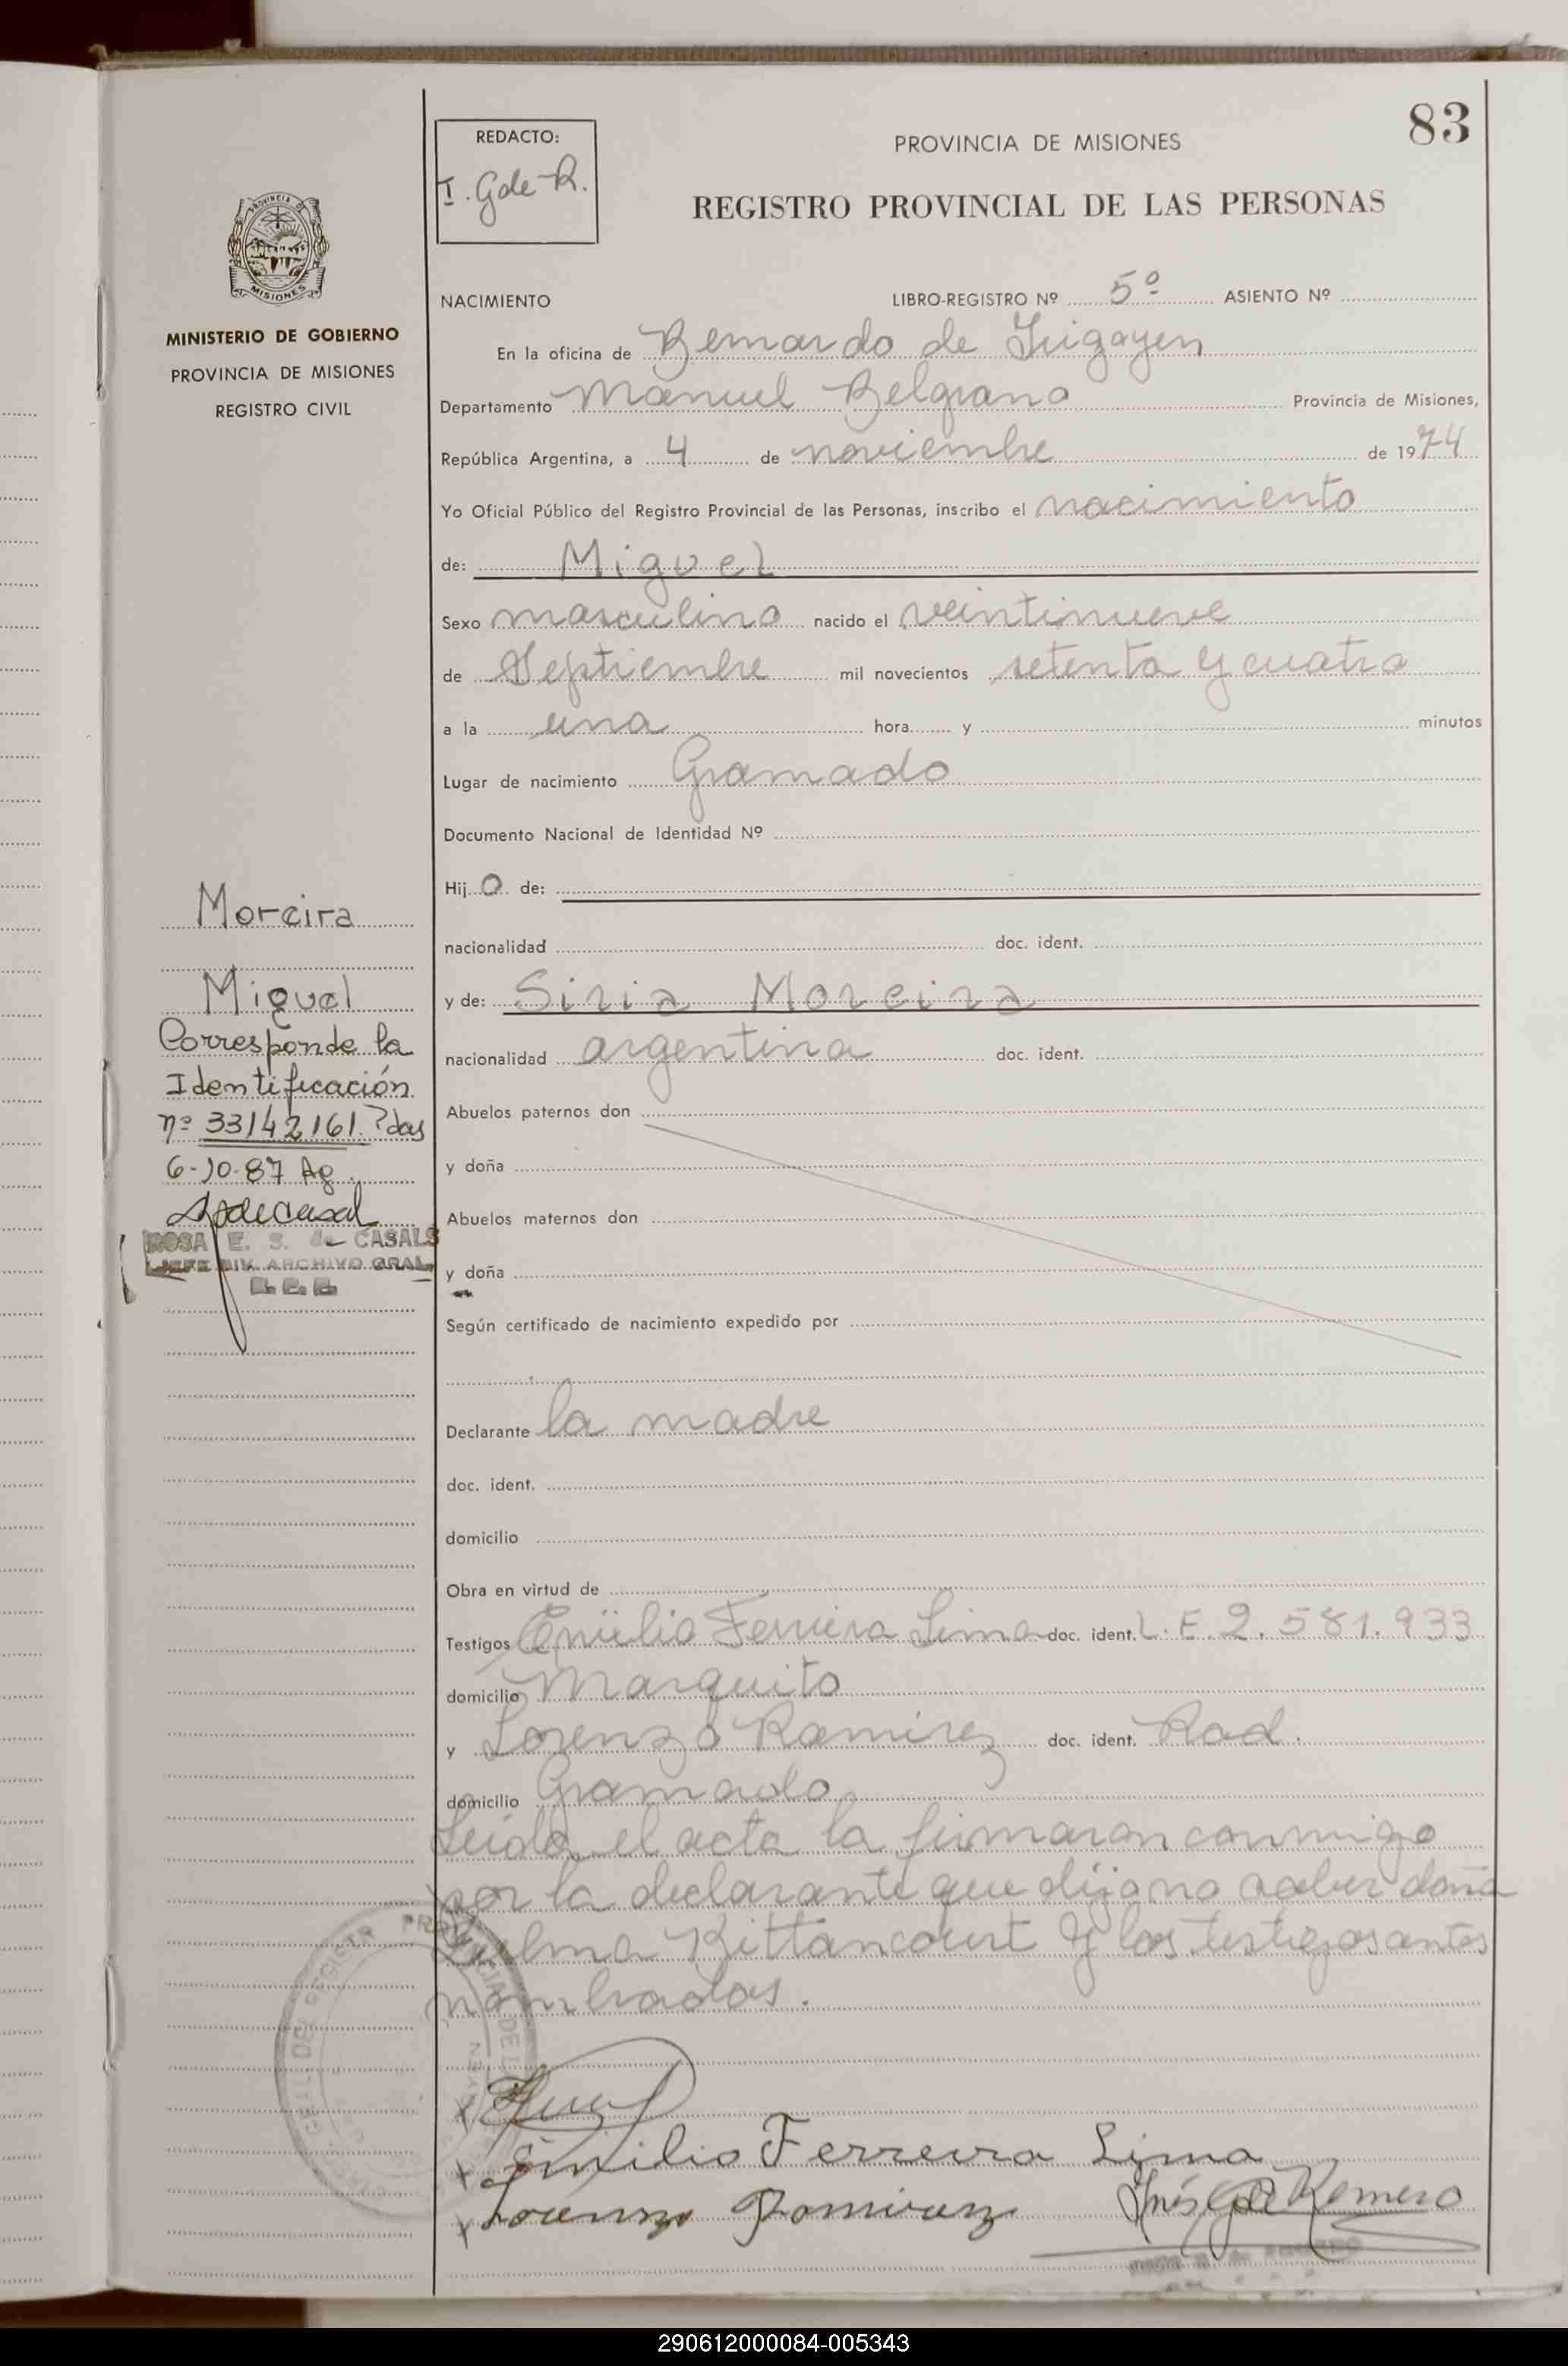 83
REDACTO:
I. G de R.
PROVINCIA DE MISIONES
REGISTRO PROVINCIAL DE LAS PERSONAS
MISIONES
MINISTERIO DE GOBIERNO
PROVINCIA DE MISIONES
REGISTRO CIVIL
NACIMIENTO LIBRO-REGISTRO Nº 5º ASIENTO Nº
En la oficina de Bernardo de Irigoyen
Departamento Manuel Belgrano Provincia de Misiones,
República Argentina, a 4 de noviembre de 1974
Yo Oficial Público del Registro Provincial de las Personas, inscribo el nacimiento
de: Miguel
Sexo masculino nacido el veintinueve
de Septiembre mil novecientos setenta y cuatro
a la una hora y minutos
Lugar de nacimiento Gramado
Documento Nacional de Identidad Nº
Hijo de:
nacionalidad doc. ident.
y de: Siria Moreira
nacionalidad argentina doc. ident.
Abuelos paternos don
y doña
Abuelos maternos don
y doña
Según certificado de nacimiento expedido por
Declarante la madre
doc. ident.
domicilio
Obra en virtud de
Testigos Emilio Ferreira Lima doc. ident. L.E. 2.581.933
domicilio Marquito
y Lorenzo Ramirez doc. ident. Rad.
domicilio Gramado
Leída el acta la firmaron conmigo
por la declarante que dijo no saber doña
Bittancourt y los testigos antes
nombrados.
Moreira
Miguel
Corresponde la
Identificación
nº 33142161
6-10-87
ROSA E. S. de CASALS
JEFE DIV. ARCHIVO GRAL.
Emilio Ferreira Lima
Lorenzo Ramirez
Inés G de Romero
290612000084-005343